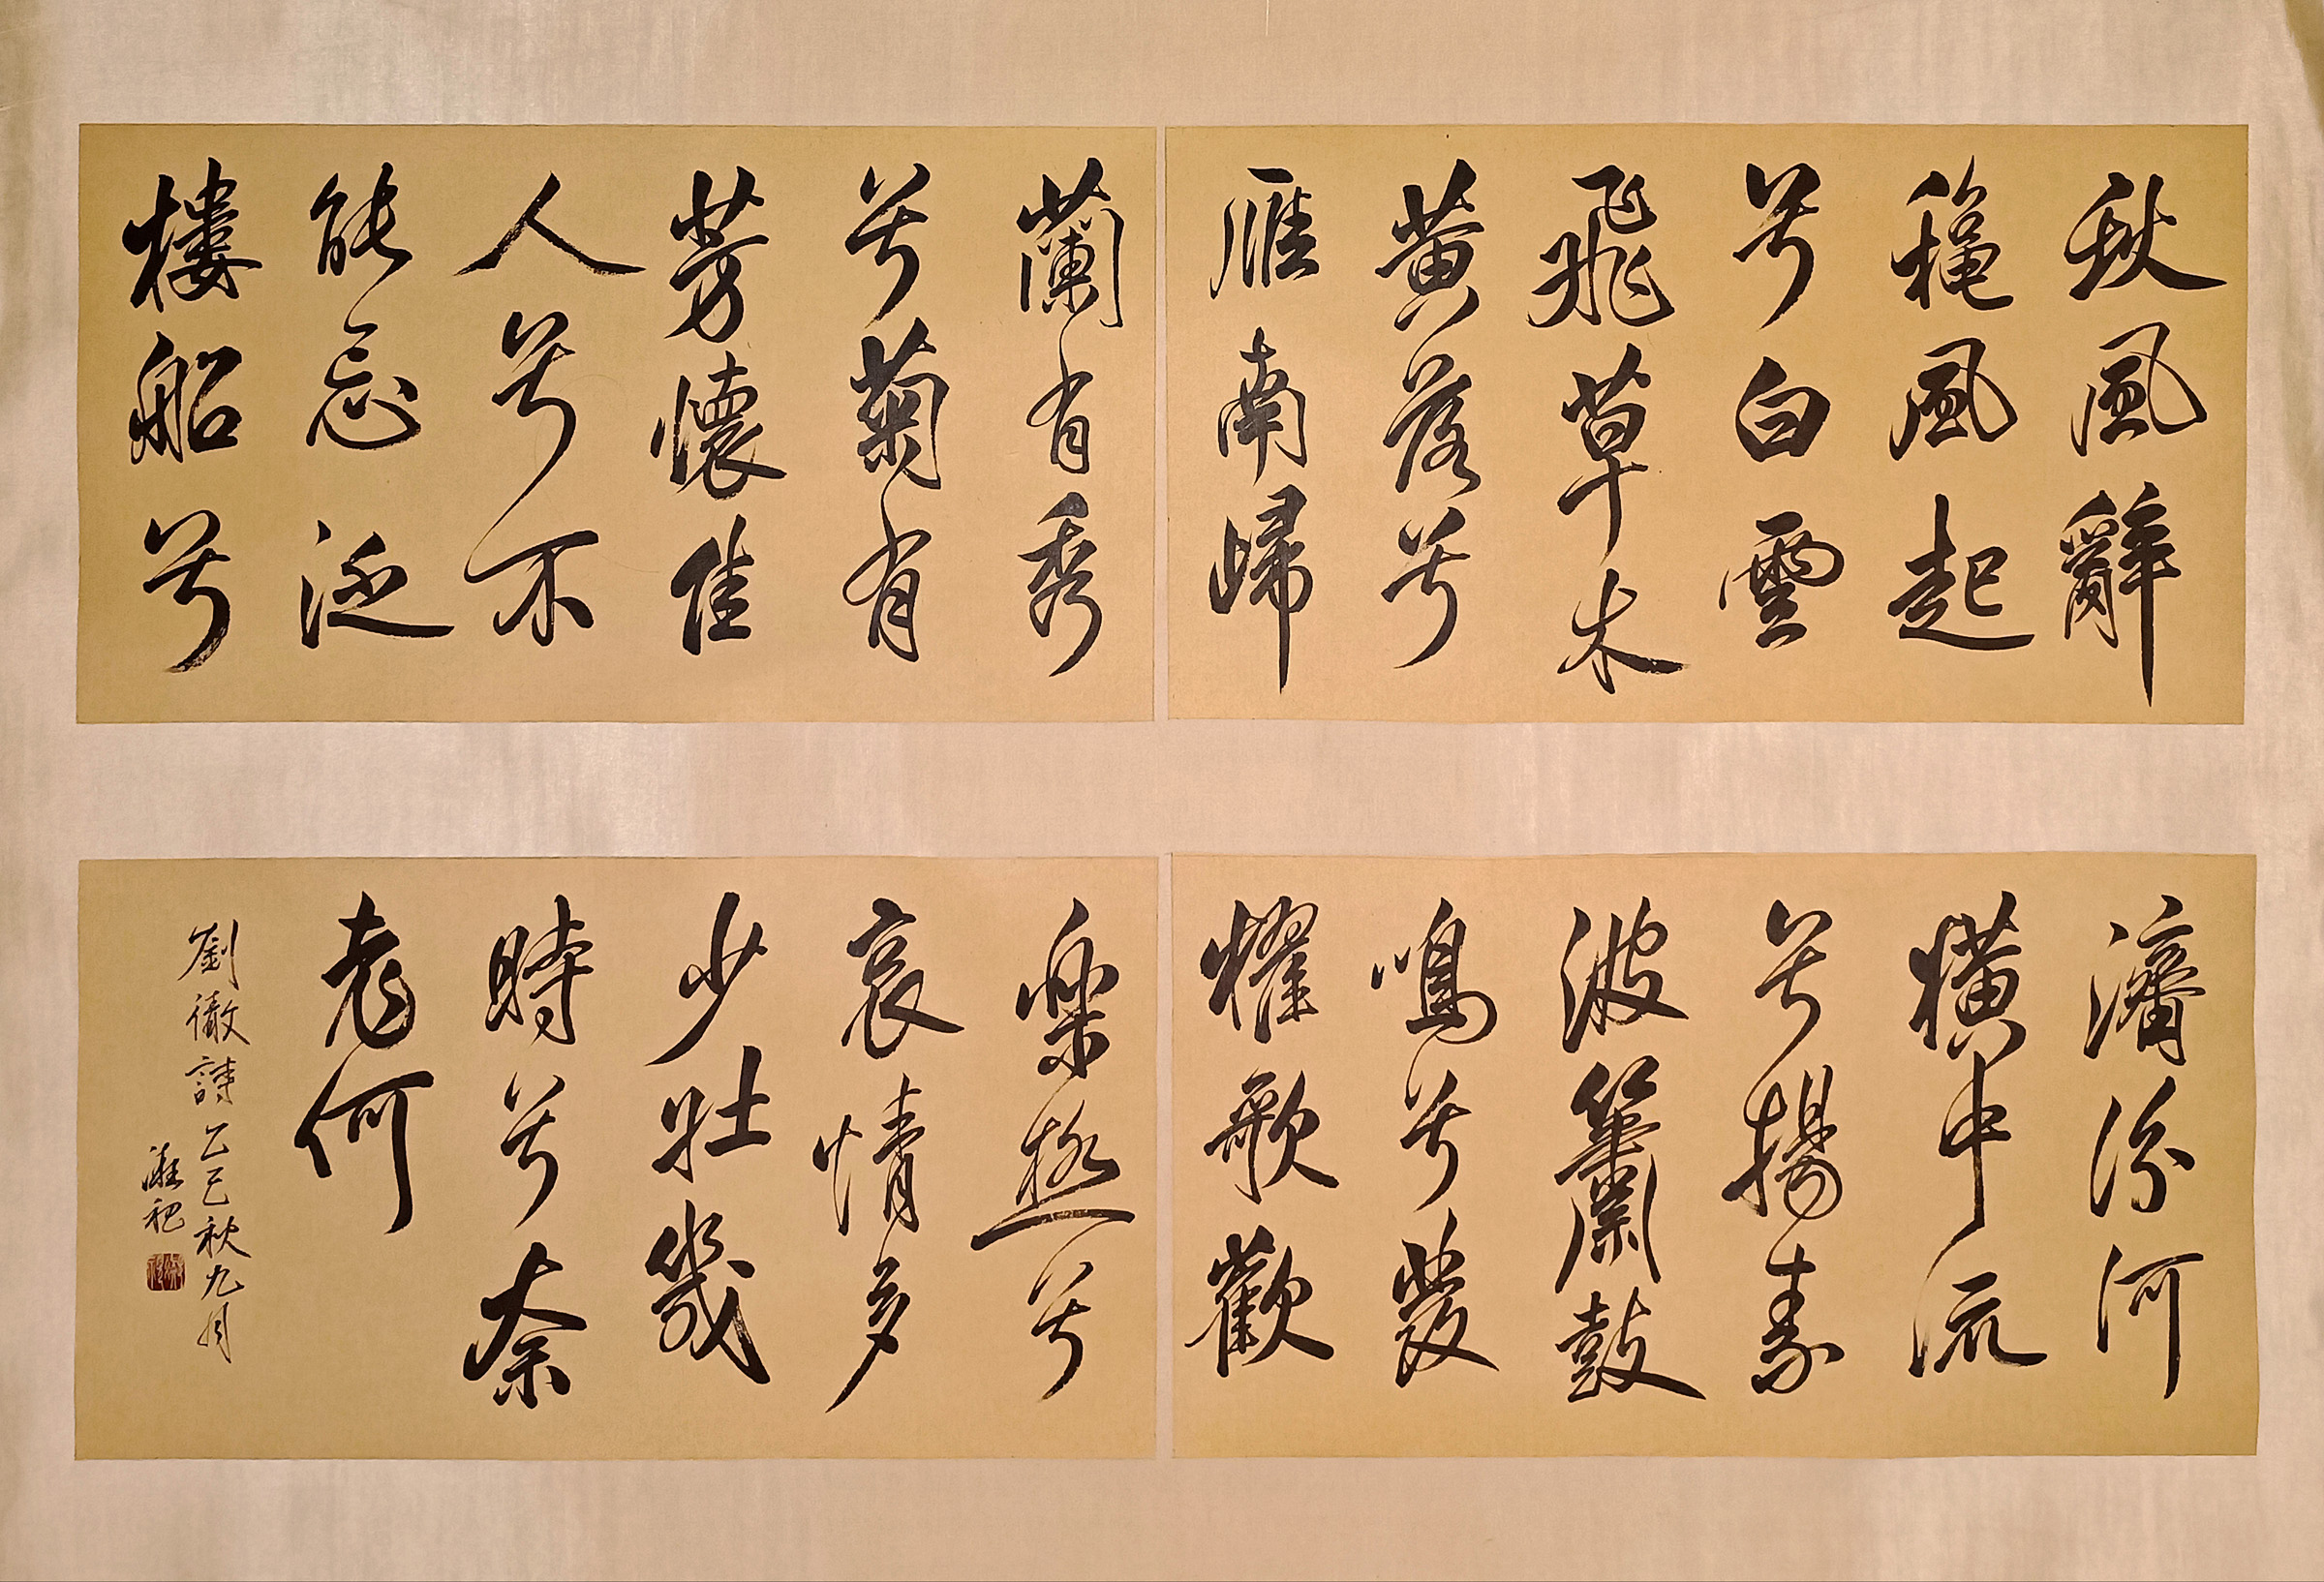 秋風辭
穐風起
兮白雲
飛草木
黄落兮
雁南歸
蘭有秀
兮菊有
芳懷佳
人兮不
能忘泛
樓船兮
濟汾河
橫中流
兮揚素
波簫鼓
鳴兮發
櫂歌歡
樂極兮
哀情多
少壯幾
時兮奈
老何
劉徹詩乙巳秋九月